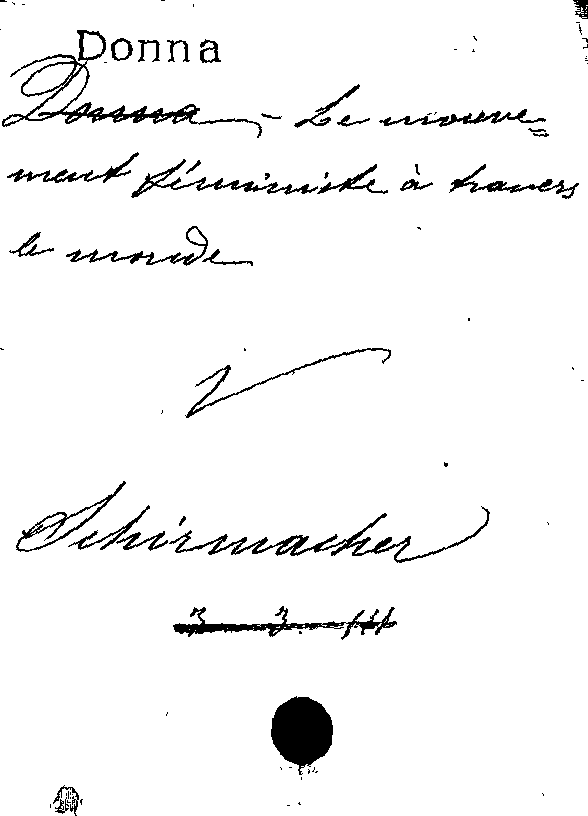 Donna
Donna - Le mouve=
ment féministe à travers
le monde
V
Schirmacher
3 3.